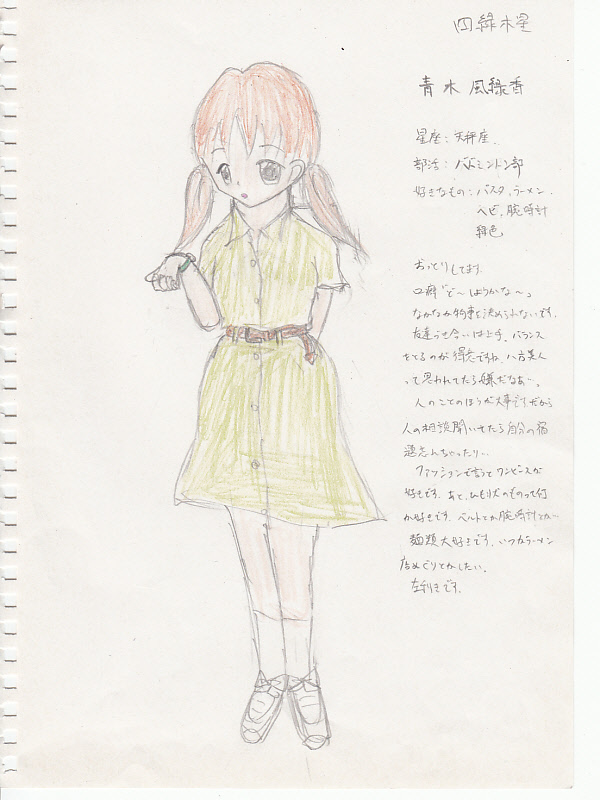 四緑木星
青木 風緑香
星座：天秤座
部活：バドミントン部
好きなもの：パスタ、ラーメン、
ヘビ、腕時計
緑色
おっとりしてます。
口癖「ど〜しようかな〜」
なかなか物事を決められないです。
友達づき合いは上手、バランス
をとるのが得意ですね。八方美人
って思われてたら嫌だなあ…。
人のことのほうが大事です。だから
人の相談聞いてたら自分の宿
題忘れちゃったり…
ファッションで言うとワンピースが
好きです。あと、ひも状のものって何
か好きです。ベルトとか腕時計とか…
麺類大好きです。いつかラーメン
店めぐりとかしたい。
左利きです。